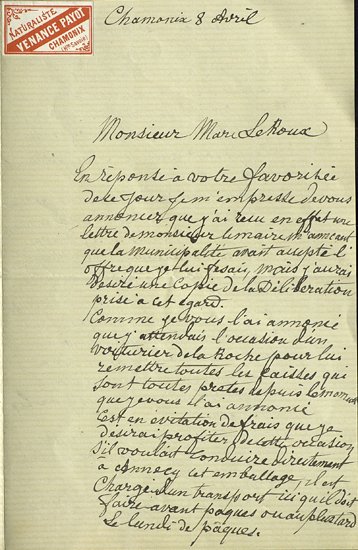 NATURALISTE
VENANCE PAYOT
CHAMONIX
(Hte Savoie)
Chamonix 8 Avril
Monsieur Marc LeRoux
En réponse à votre favorisée
de ce jour je m'empresse de vous
annoncer que j'ai reçu en effet une
lettre de monsieur le maire m'annoncant
que la Municipalité avait accepté l'
offre que je lui fesais, mais j'aurais
desiré une Copie de la Délibération
prise à cet égard.
Comme je vous l'ai annoncé
que j'attendais l'occasion d'un
voiturier de la Roche pour lui
remettre toutes les caisses qui
sont toutes pretes depuis le moment
que je vous l'ai annoncé
C'est en évitation de frais que je
desirai profiter de cette occasion
S'il voulait conduire directement
à Annecy cet emballage, il est
Chargé d'un transport ici qu'il doit
faire avant pâques ou au plus tard
Le lundi de pâques.